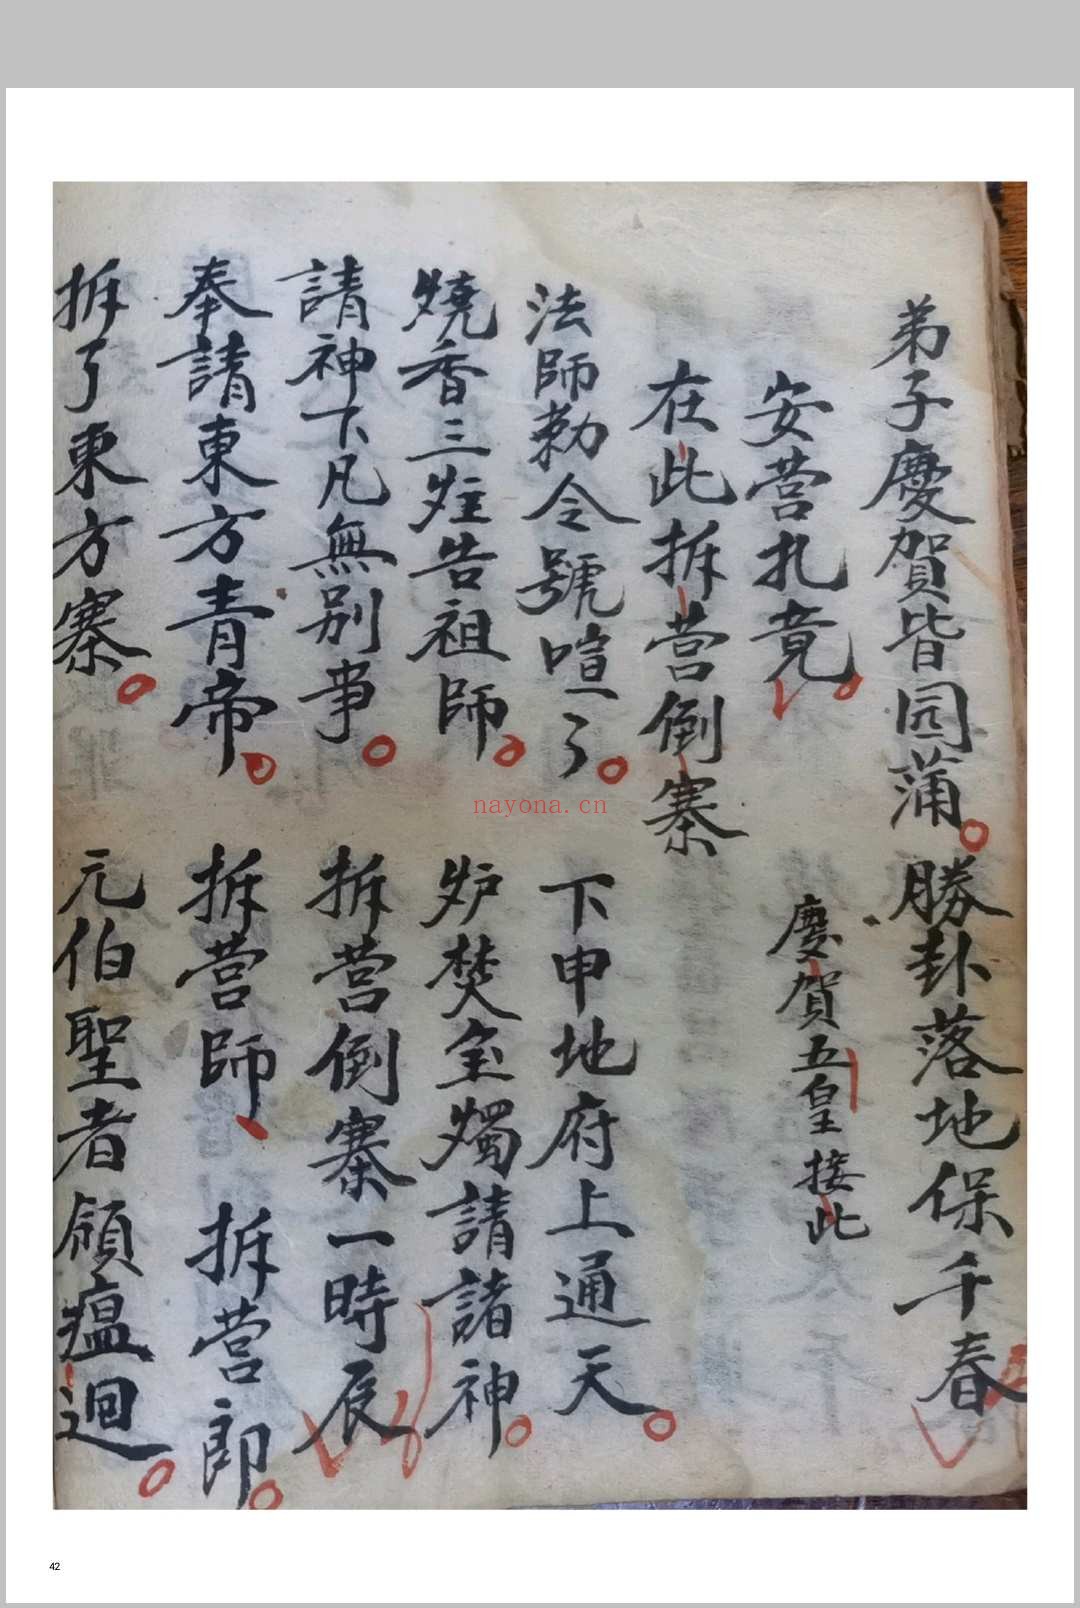 弟子慶賀皆园蒲。勝卦落地保千春
安营扎竟。
慶賀五皇接此
在此拆营倒寨
法師勅令號喧了。下申地府上通天。
燒香三炷告祖師。炉焚金燭請諸神。
請神下凡無别事。拆营倒寨一時辰
奉請東方青帝。拆营師、拆营郎。
拆了東方寨。元伯聖者領瘟迴。
nayona.cn
42